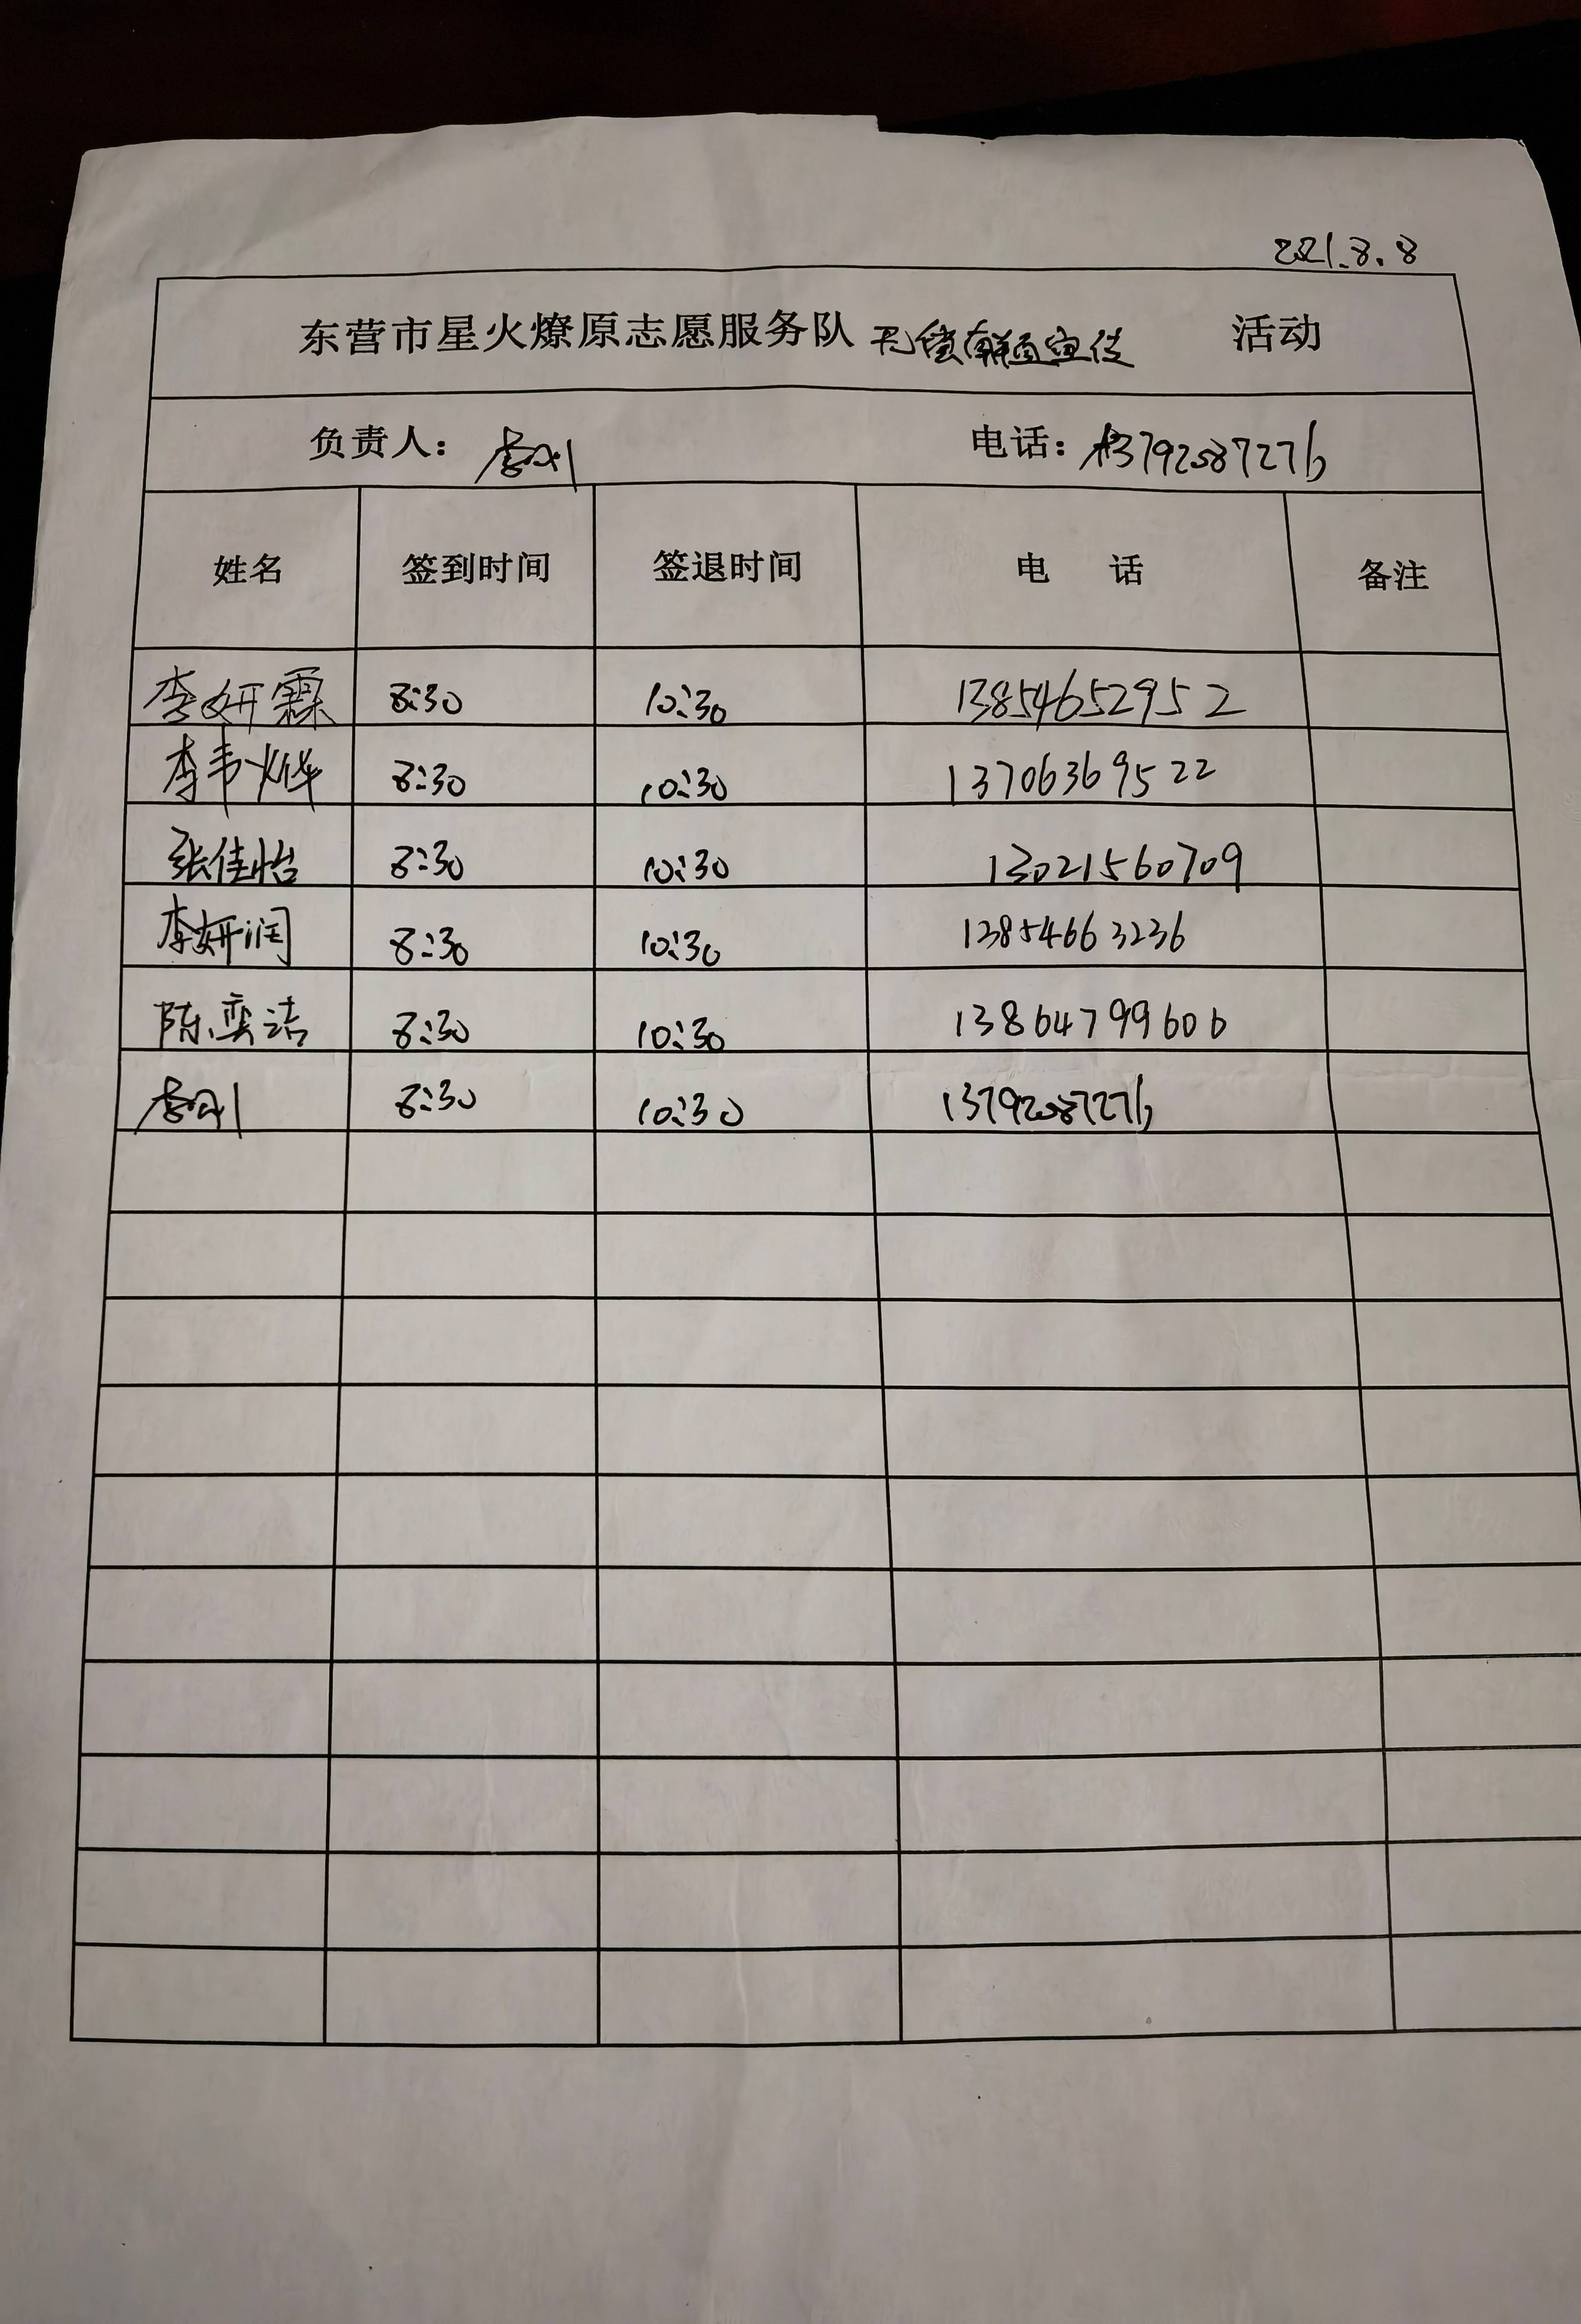 2021.8.8
东营市星火燎原志愿服务队 无偿献血宣传 活动
负责人： 李刚 电话：13792087276
姓名 签到时间 签退时间 电 话 备注
李妍霖 8:30 10:30 13854652952
李韦烨 8:30 10:30 13706369522
张佳怡 8:30 10:30 13021560709
李妍润 8:30 10:30 13854663236
陈奕洁 8:30 10:30 13864799606
李刚 8:30 10:30 13792087276